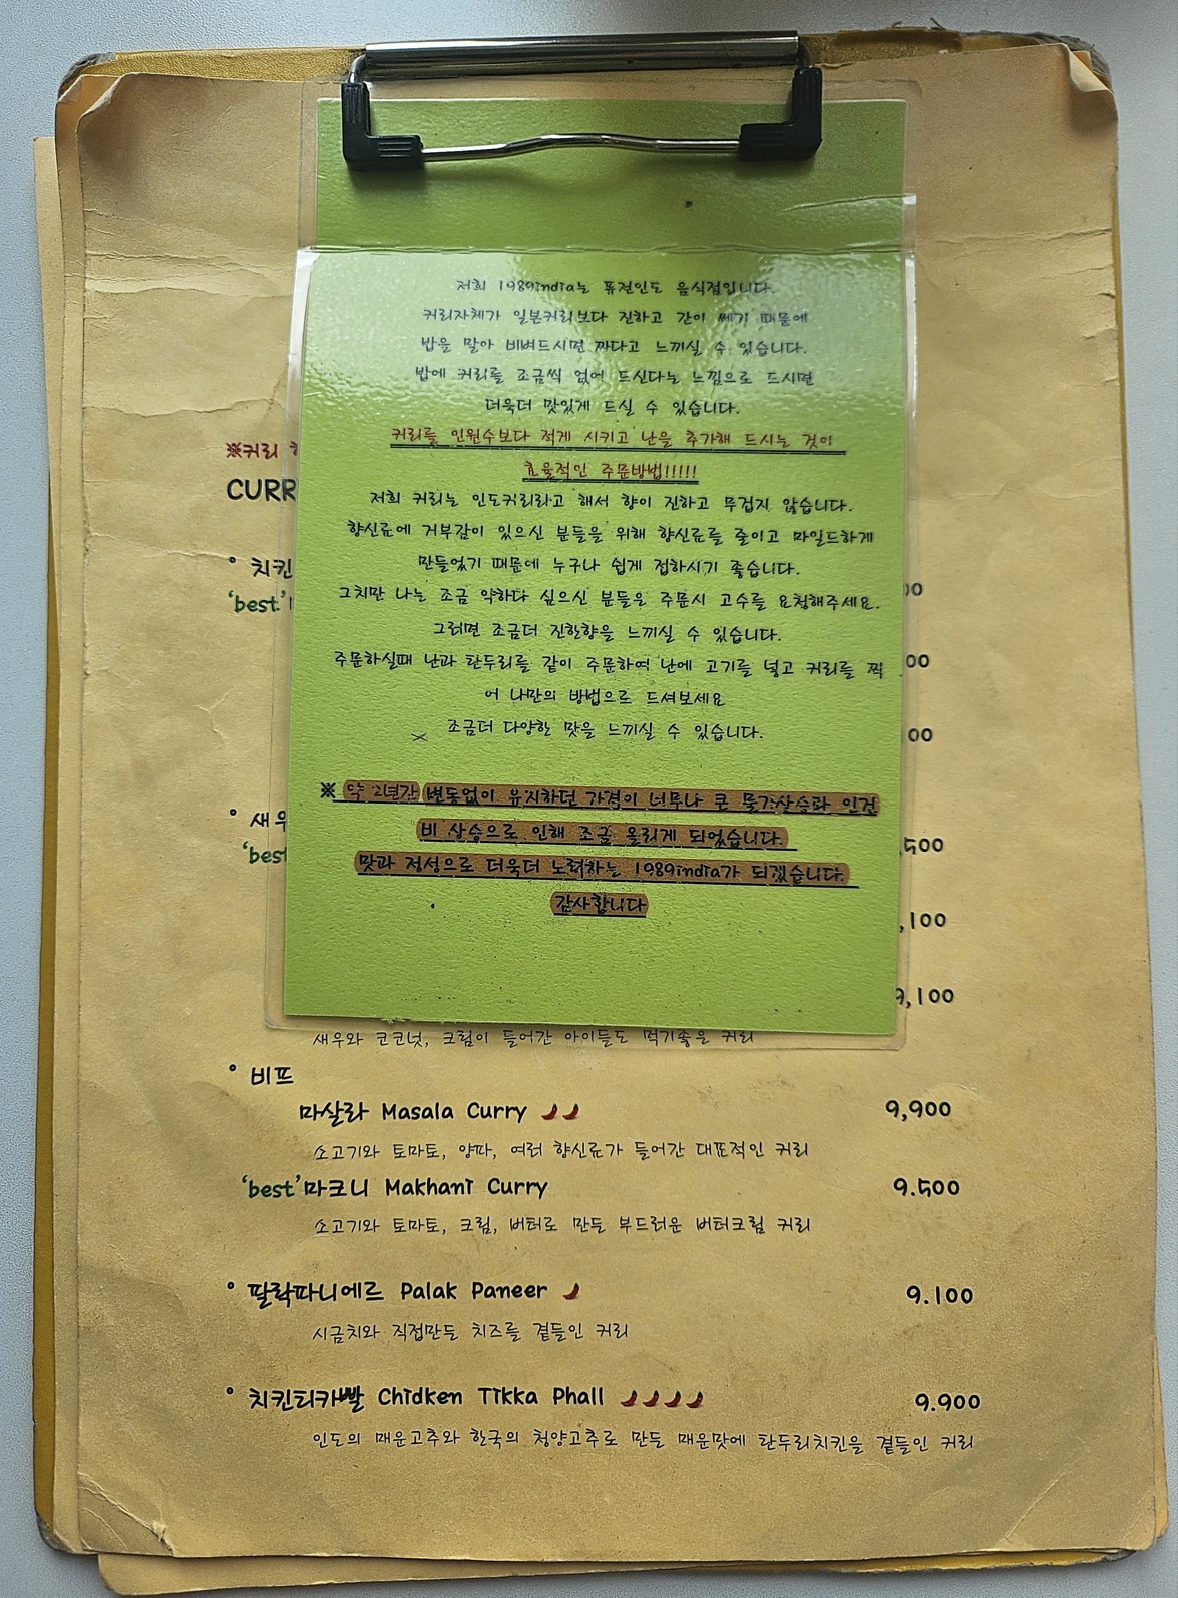 저희 1989india는 퓨전인도 음식점입니다.
커리자체가 일본커리보다 진하고 간이 쎄기 때문에
밥을 말아 비벼드시면 짜다고 느끼실 수 있습니다.
밥에 커리를 조금씩 얹어 드신다는 느낌으로 드시면
더욱더 맛있게 드실 수 있습니다.
커리를 인원수보다 적게 시키고 난을 추가해 드시는 것이
효율적인 주문방법!!!!!
저희 커리는 인도커리라고 해서 향이 진하고 무겁지 않습니다.
향신료에 거부감이 있으신 분들을 위해 향신료를 줄이고 마일드하게
만들었기 때문에 누구나 쉽게 접하시기 좋습니다.
그치만 나는 조금 약하다 싶으신 분들은 주문시 고수를 요청해주세요.
그러면 조금더 진한향을 느끼실 수 있습니다.
주문하실때 난과 탄두리를 같이 주문하여 난에 고기를 넣고 커리를 찍
어 나만의 방법으로 드셔보세요
조금더 다양한 맛을 느끼실 수 있습니다.
※ 약 2년간 변동없이 유지하던 가격이 너무나 큰 물가상승과 인건
비 상승으로 인해 조금 올리게 되었습니다.
맛과 정성으로 더욱더 노력하는 1989india가 되겠습니다.
감사합니다
※커리
CURR
° 치킨
'best'
00
00
00
° 새우
'best
,500
,100
9,100
새우와 코코넛, 크림이 들어간 아이들도 먹기좋은 커리
° 비프
마살라 Masala Curry 9,900
소고기와 토마토, 양파, 여러 향신료가 들어간 대표적인 커리
'best'마크니 Makhani Curry 9.500
소고기와 토마토, 크림, 버터로 만든 부드러운 버터크림 커리
° 팔락파니에르 Palak Paneer 9.100
시금치와 직접만든 치즈를 곁들인 커리
° 치킨티카빨 Chidken Tikka Phall 9.900
인도의 매운고추와 한국의 청양고추로 만든 매운맛에 탄두리치킨을 곁들인 커리